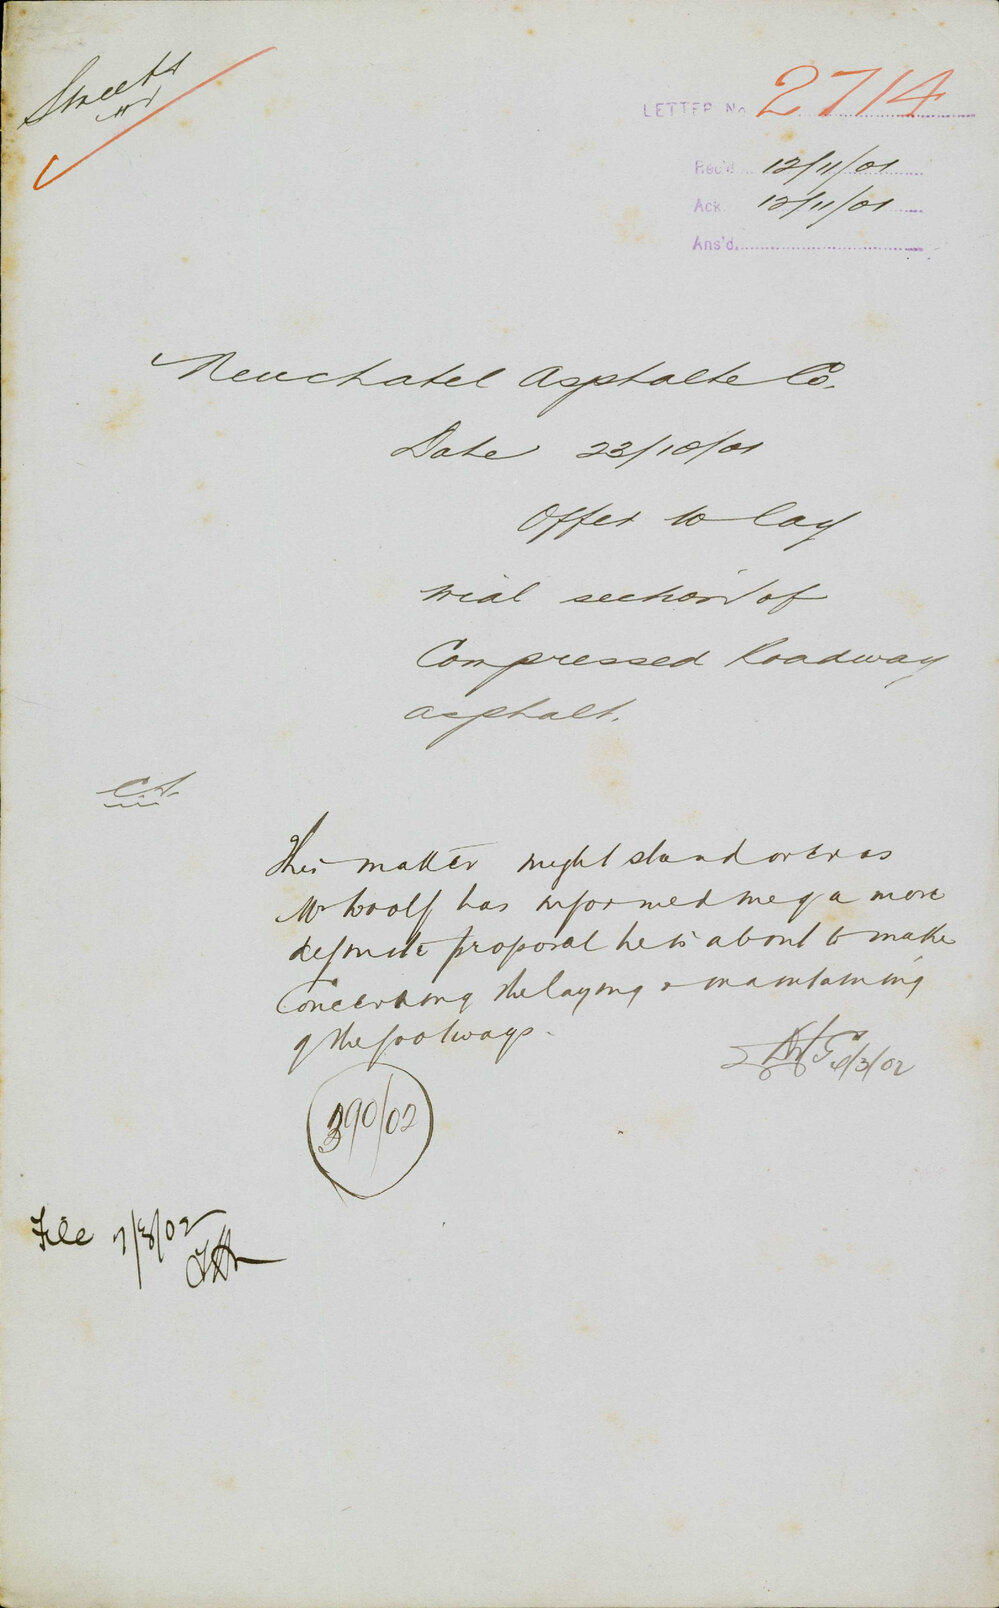 Streets
LETTER No 2714
Rec'd 12/11/01
Ack. 12/11/01
Ans'd
Neuchatel Asphalte Co.
Date 23/10/01
Offer to lay
trial section of
Compressed Roadway
asphalt.
This matter might stand over as
Mr Woolf has informed me of a more
definite proposal he is about to make
concerning the laying & maintaining
of the footways.
6/3/02
390/02
File 7/3/02